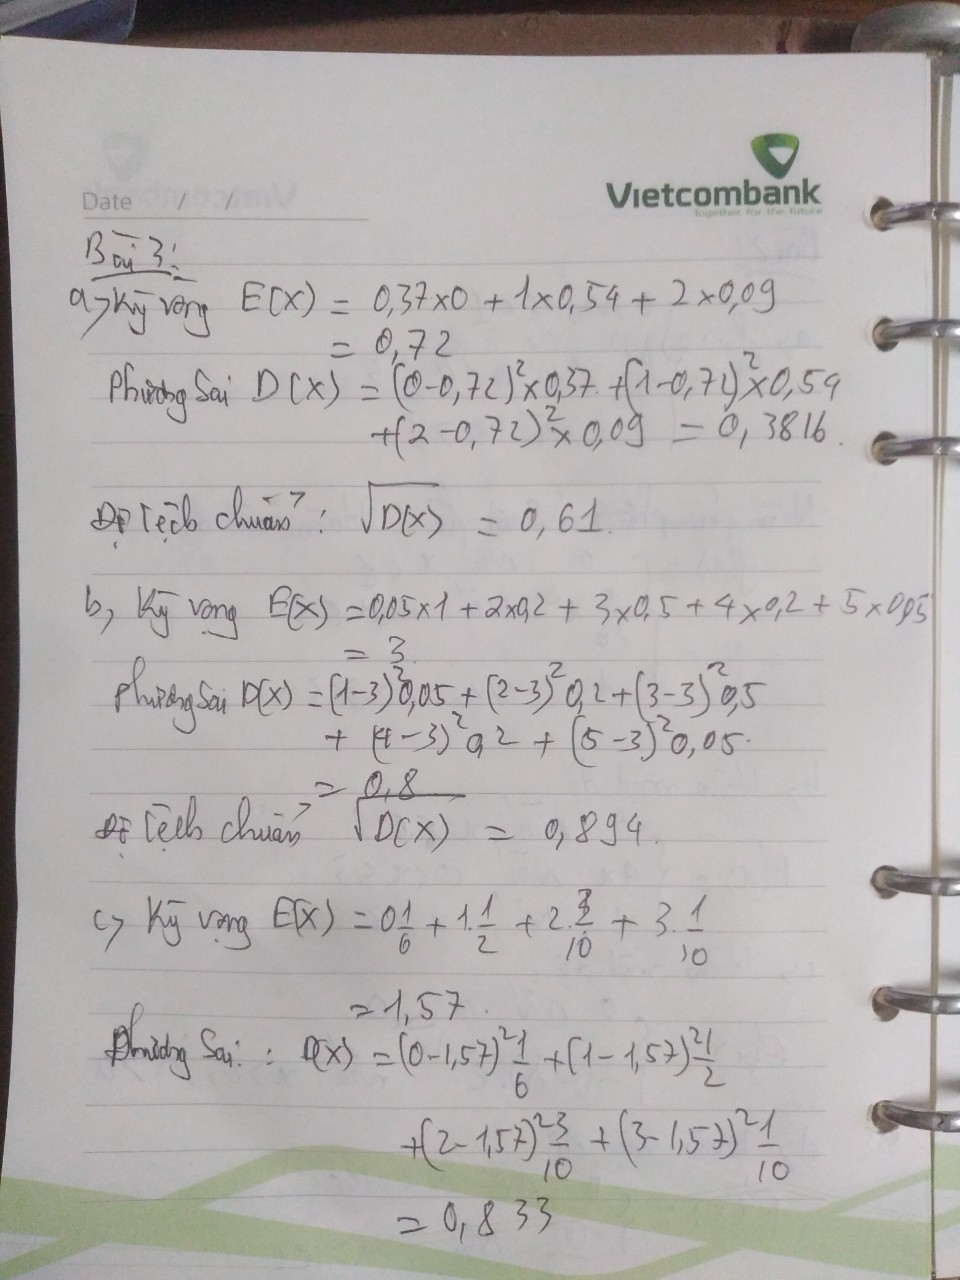 Vietcombank
Together for the future
Date / /
Bài 3:
a, Kỳ vọng E(X) = 0,37x0 + 1x0,54 + 2x0,09
= 0,72
Phương Sai D(X) = (0-0,72)²x0,37 + (1-0,72)²x0,54
+(2-0,72)²x0,09 = 0,3816.
Độ lệch chuẩn: √D(X) = 0,61.
b, Kỳ vọng E(X) = 0,05x1 + 2x0,2 + 3x0,5 + 4x0,2 + 5x0,05
= 3
Phương Sai D(X) = (1-3)²0,05 + (2-3)²0,2 + (3-3)²0,5
+ (4-3)²0,2 + (5-3)²0,05.
= 0,8
Độ lệch chuẩn √D(X) = 0,894.
c, Kỳ vọng E(X) = 0 1/6 + 1.1/2 + 2.3/10 + 3.1/10
= 1,57.
Phương Sai: D(X) = (0-1,57)² 1/6 + (1-1,57)² 1/2
+(2-1,57)² 3/10 + (3-1,57)² 1/10
= 0,833